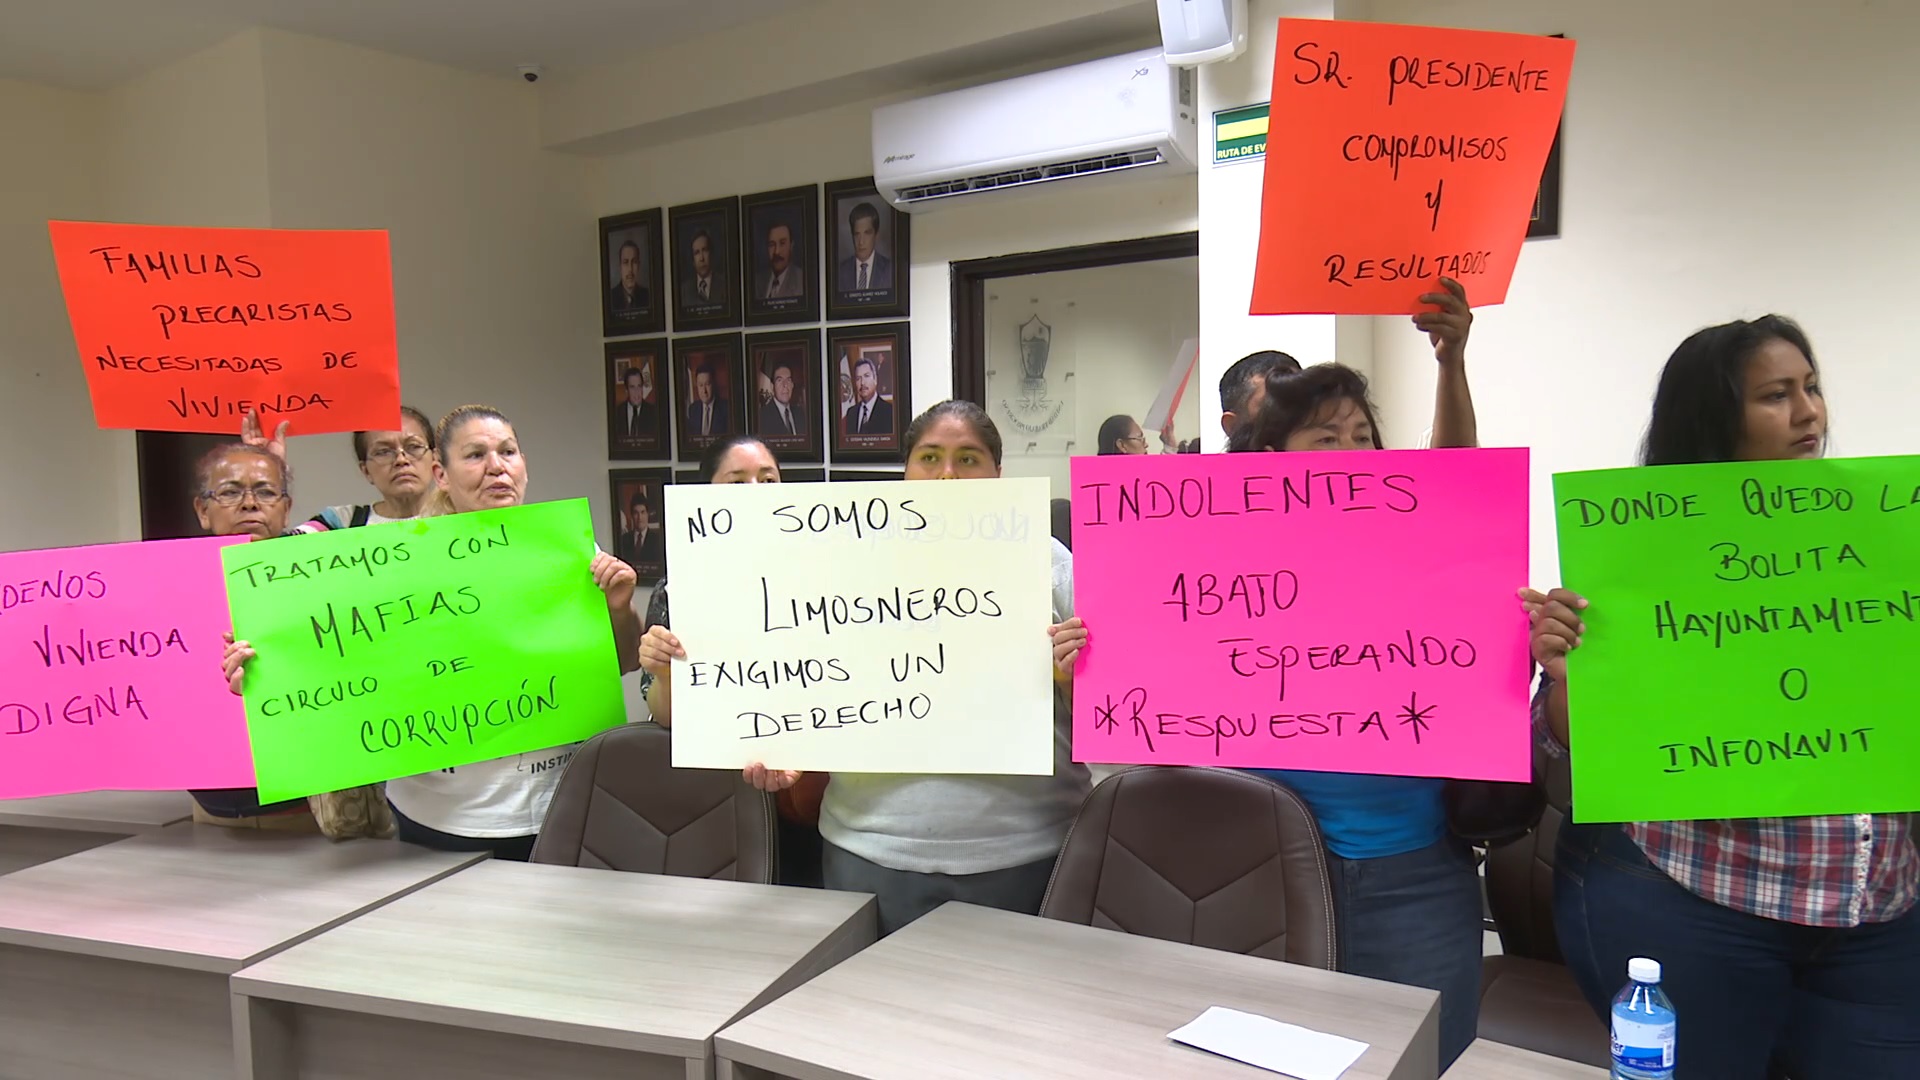 FAMILIAS
PRECARISTAS
NECESITADAS DE
VIVIENDA
SR. PRESIDENTE
COMPROMISOS
Y
RESULTADOS
RUTA DE EV
DENOS
VIVIENDA
DIGNA
TRATAMOS CON
MAFIAS
CIRCULO DE
CORRUPCIÓN
NO SOMOS
LIMOSNEROS
EXIGIMOS UN
DERECHO
INDOLENTES
ABAJO
ESPERANDO
*RESPUESTA*
DONDE QUEDO LA
BOLITA
HAYUNTAMIENT
O
INFONAVIT
INSTI